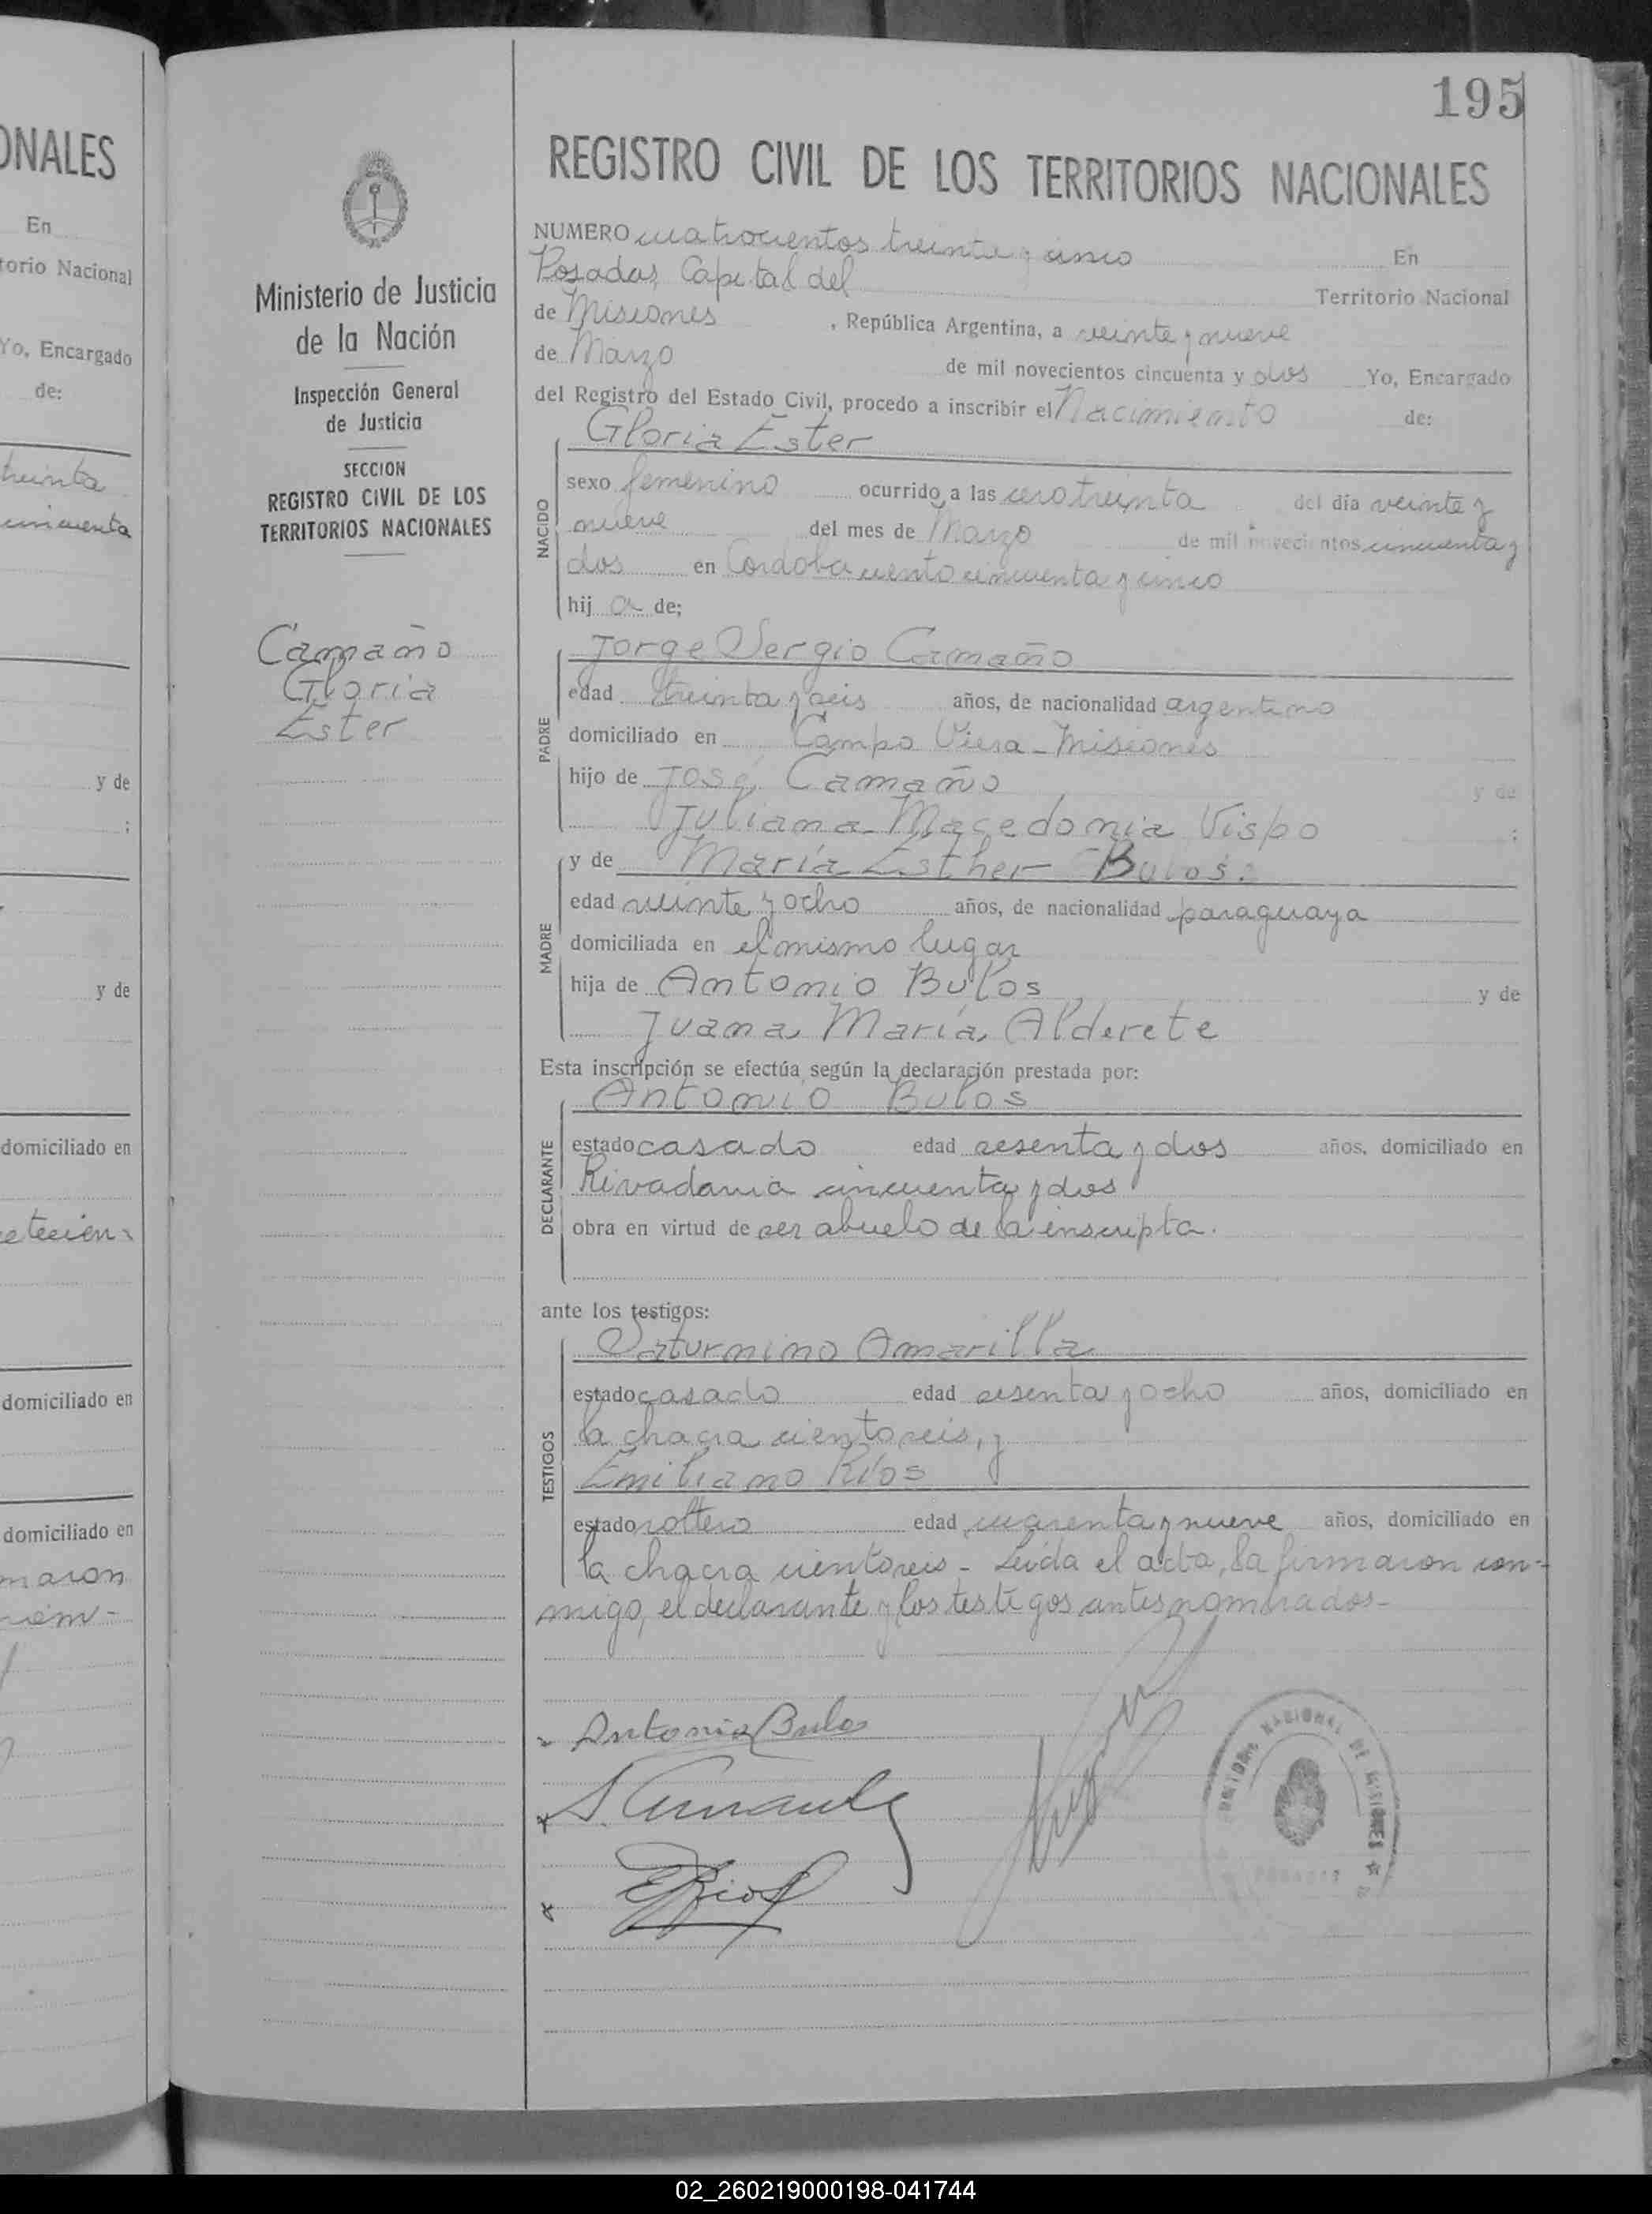 195
REGISTRO CIVIL DE LOS TERRITORIOS NACIONALES
NUMERO cuatrocientos treinta y cinco En
Posadas, Capital del Territorio Nacional
de Misiones, República Argentina, a veinte y nueve
de Marzo de mil novecientos cincuenta y dos Yo, Encargado
del Registro del Estado Civil, procedo a inscribir el Nacimiento de:
Gloria Ester
NACIDO
sexo femenino ocurrido a las cero treinta del día veinte y
nueve del mes de Marzo de mil novecientos cincuenta y
dos en Cordoba ciento cincuenta y cinco
hij a de;
Jorge Sergio Camaño
PADRE
edad treinta y seis años, de nacionalidad argentino
domiciliado en Campo Viera - Misiones
hijo de José Camaño y de
Juliana Macedonia Vispo ;
y de María Esther Bulos.
MADRE
edad veinte y ocho años, de nacionalidad paraguaya
domiciliada en el mismo lugar
hija de Antonio Bulos y de
Juana María Alderete
Esta inscripción se efectúa según la declaración prestada por:
Antonio Bulos
DECLARANTE
estado casado edad sesenta y dos años, domiciliado en
Rivadavia cincuenta y dos
obra en virtud de ser abuelo de la inscripta.
ante los testigos:
Saturnino Amarilla
TESTIGOS
estado casado edad sesenta y ocho años, domiciliado en
la chacra ciento seis, y
Emiliano Ríos
estado soltero edad cuarenta y nueve años, domiciliado en
la chacra ciento seis - Leída el acta, la firmaron con-
migo, el declarante y los testigos antes nombrados-
Antonio Bulos
E Rios
NACIONAL DE MISIONES
Ministerio de Justicia
de la Nación
Inspección General
de Justicia
SECCION
REGISTRO CIVIL DE LOS
TERRITORIOS NACIONALES
Camaño
Gloria
Ester
ONALES
En
torio Nacional
Yo, Encargado
de:
treinta
cincuenta
y de
;
y de
domiciliado en
domiciliado en
domiciliado en
maron
02_260219000198-041744